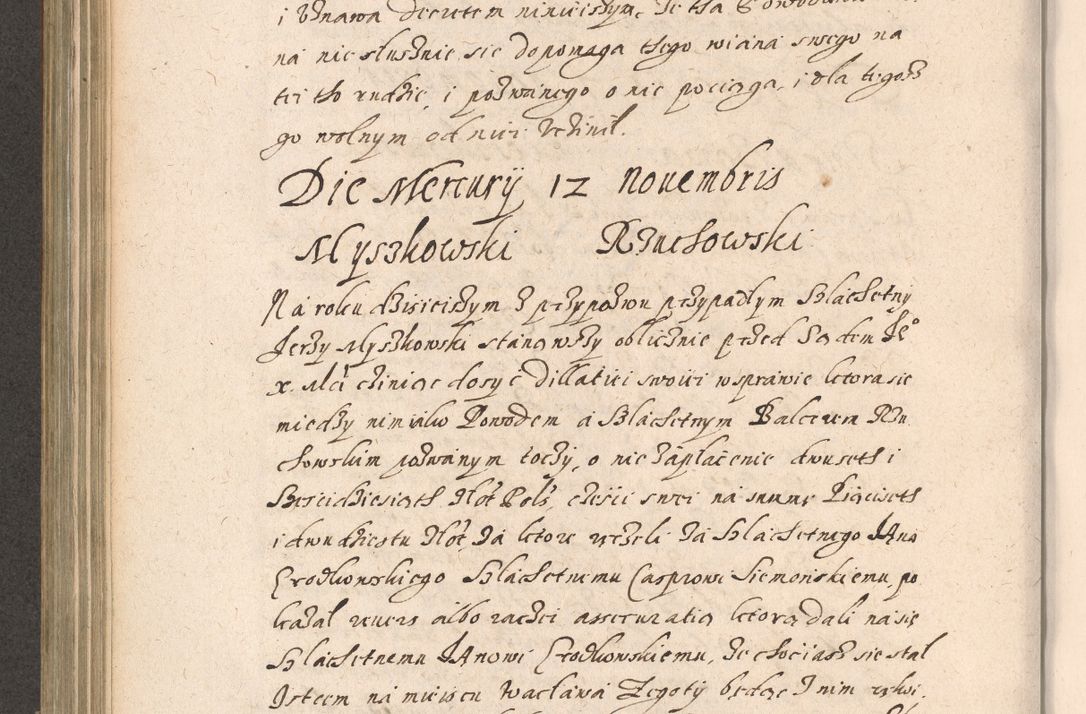 i Vznawa decretem ninieiszym, że tha Bondowa
na nie słusznie sie dopomaga thego wiana swego na
tei tho rudzie, i pozwanego o nie pociąga, i dla tegosz
go wolnym od niei vczinił.
Die Mercurÿ 12 Nouembris
Myszkowski Rzuchowski
Na roku dzisieiszym z przypozwu przypadłym Szlachetny
Jerzy Myszkowski stanąwszy oblicznie przed Sądem Je°
x. Mci cziniąc dosyć dillatiei swoiei w sprawie ktora sie
miedzy nim iako Powodem a Szlachetnym Balcerem Rzu
chowskim pozwanym toczy, o nie zapłacenie dwuseth i
Sescidziesiąth Złot Pols, części swei na summe Pięciseth
i dwudziestu Złot, za ktore ręczeli za Szlachetnego JAna
Czrodkowskiego Szlachetnemu Casprowi Siemońskiemu, po
kazał reuers albo raczei assecuratią ktorą dali na się
Szlachetnemu JAnowi Czrodkowskiemu, że chociasz sie stal
Jstcem na mieiscu Wacława Zegoty będąc z nim rękoi